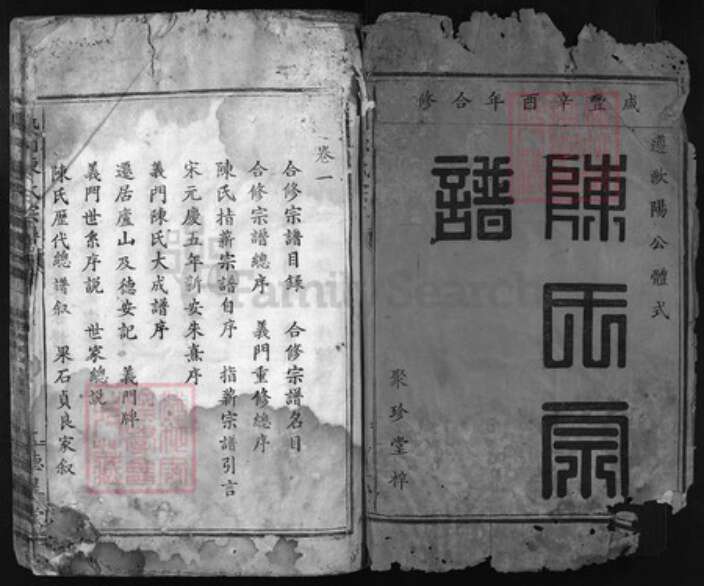 咸豐辛酉年合修
遵歐陽公體式
陳氏宗
譜
聚珍堂梓
卷一
合修宗譜目錄 合修宗譜名目
合修宗譜總序 義門重修總序
陳氏拮薪宗譜自序 指薪宗譜引言
宋元慶五年新安朱熹序
義門陳氏大成譜序
遷居廬山及德安記 義門牌
義門世系序說 世家總說
陳氏歷代總譜叙 果石貞良家叙
FamilySearch